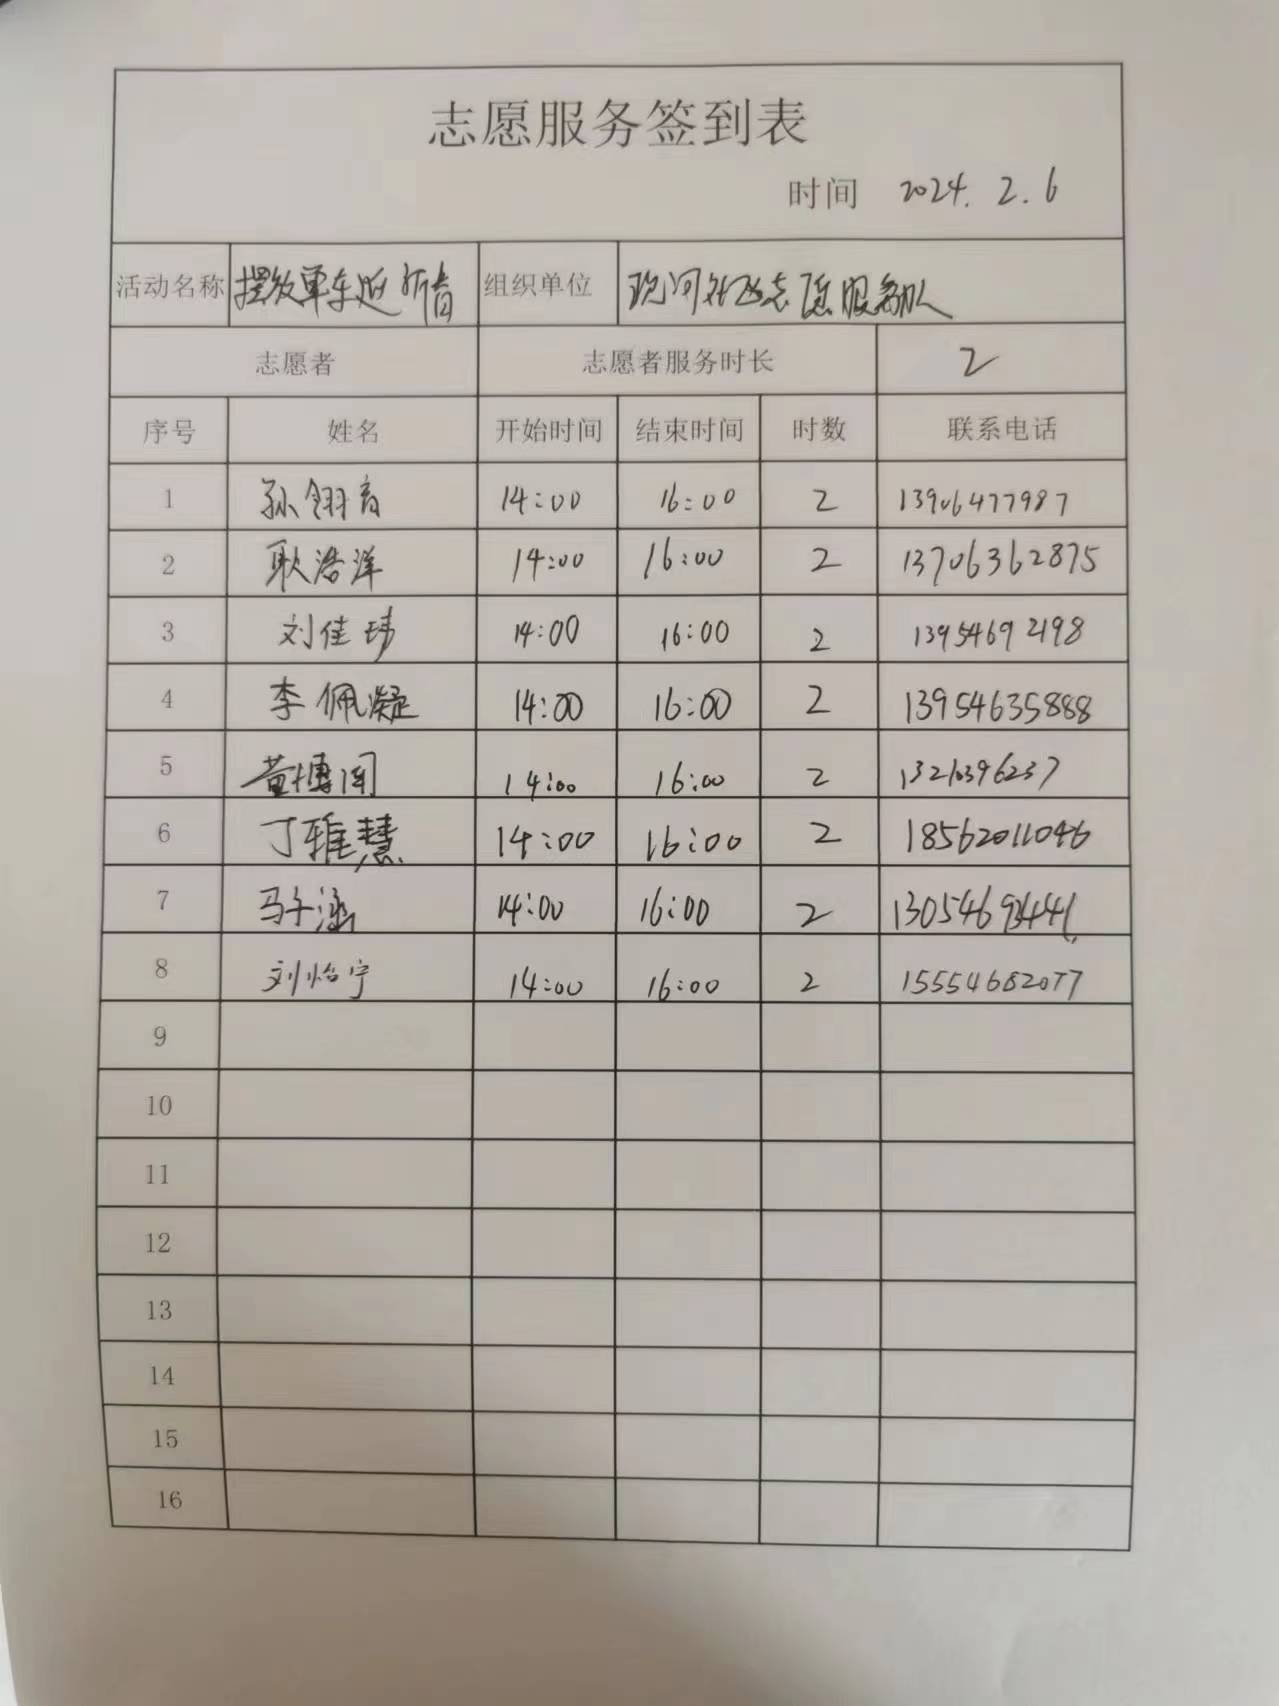 志愿服务签到表
时间 2024.2.6
活动名称 摆放单车迎新春 组织单位 社区志愿服务队
志愿者 志愿者服务时长 2
序号 姓名 开始时间 结束时间 时数 联系电话
1 孙翎育 14:00 16:00 2 13906477987
2 耿浩洋 14:00 16:00 2 13706362875
3 刘佳玮 14:00 16:00 2 13954692198
4 李佩凝 14:00 16:00 2 13954635888
5 黄博闻 14:00 16:00 2 13210396237
6 丁雅慧 14:00 16:00 2 18562011046
7 马子涵 14:00 16:00 2
8 刘怡宁 14:00 16:00 2 15554682077
9
10
11
12
13
14
15
16